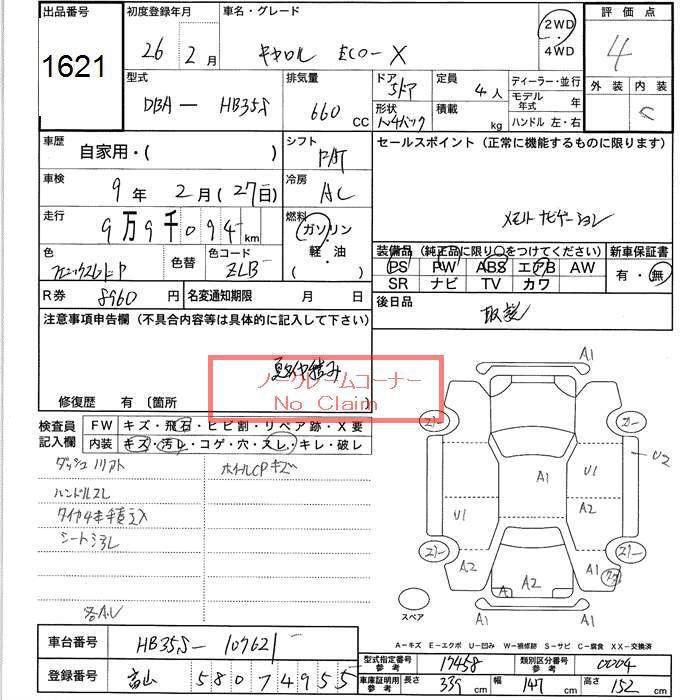 出品番号
1621
初度登録年月
26 2月
車名・グレード
キャロル ECO-X
2WD
・
4WD
評価点
4
外装 内装
C
型式
DBA— HB35S
排気量
660 CC
ドア
5ドア
形状
定員
4人
積載
kg
ディーラー・並行
モデル年式 年
ハンドル 左・右
車歴
自家用・( )
シフト
FAT
セールスポイント (正常に機能するものに限ります)
メモリナビゲーション
車検
9年 2月(27日)
冷房
AC
走行
9万9千094km
燃料
ガソリン
軽・油
( )
色
色替
色コード
ZLB
装備品 (純正品に限り○をつけてください)
PS PW ABS エアB AW
SR ナビ TV カワ
新車保証書
有・無
R券 8960円
名変通知期限 月 日
後日品
取説
注意事項申告欄 (不具合内容等は具体的に記入して下さい)
ノークレームコーナー
No Claim
修復歴 有 〔箇所
検査員記入欄
FW キズ・飛石・ヒビ割・リペア跡・X要
内装 キズ・汚レ・コゲ・穴・スレ・キレ・破レ
ホイルCPキズ
ハンドルスレ
タイヤ4本積込
A1
U2
A1
U1
A2
U1
A2
A2
A
A1
A1
A1
スペア
A−キズ E−エクボ U−凹み W−補修跡 S−サビ C−腐食 XX−交換済
車台番号
HB35S- 107621
登録番号
富山 580 74955
型式指定番号 参考
17458
類別区分番号 参考
0004
車庫証明用 参考
長さ 339cm
幅 147cm
高さ 152cm